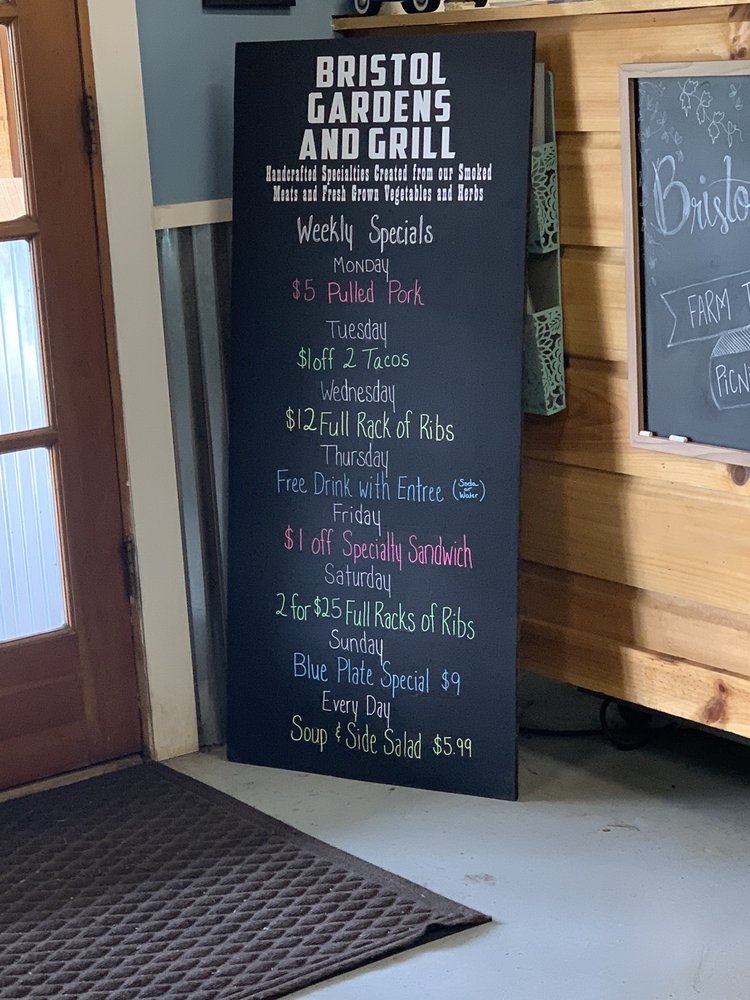 BRISTOL
GARDENS
AND GRILL
Handcrafted Specialties Created from our Smoked
Meats and Fresh Grown Vegetables and Herbs
Weekly Specials
Monday
$5 Pulled Pork
Tuesday
$1off 2 Tacos
Wednesday
$12 Full Rack of Ribs
Thursday
Free Drink with Entree (Soda or Water)
Friday
$1 off Specialty Sandwich
Saturday
2 for $25 Full Racks of Ribs
Sunday
Blue Plate Special $9
Every Day
Soup & Side Salad $5.99
Bristo
FARM T
PICN